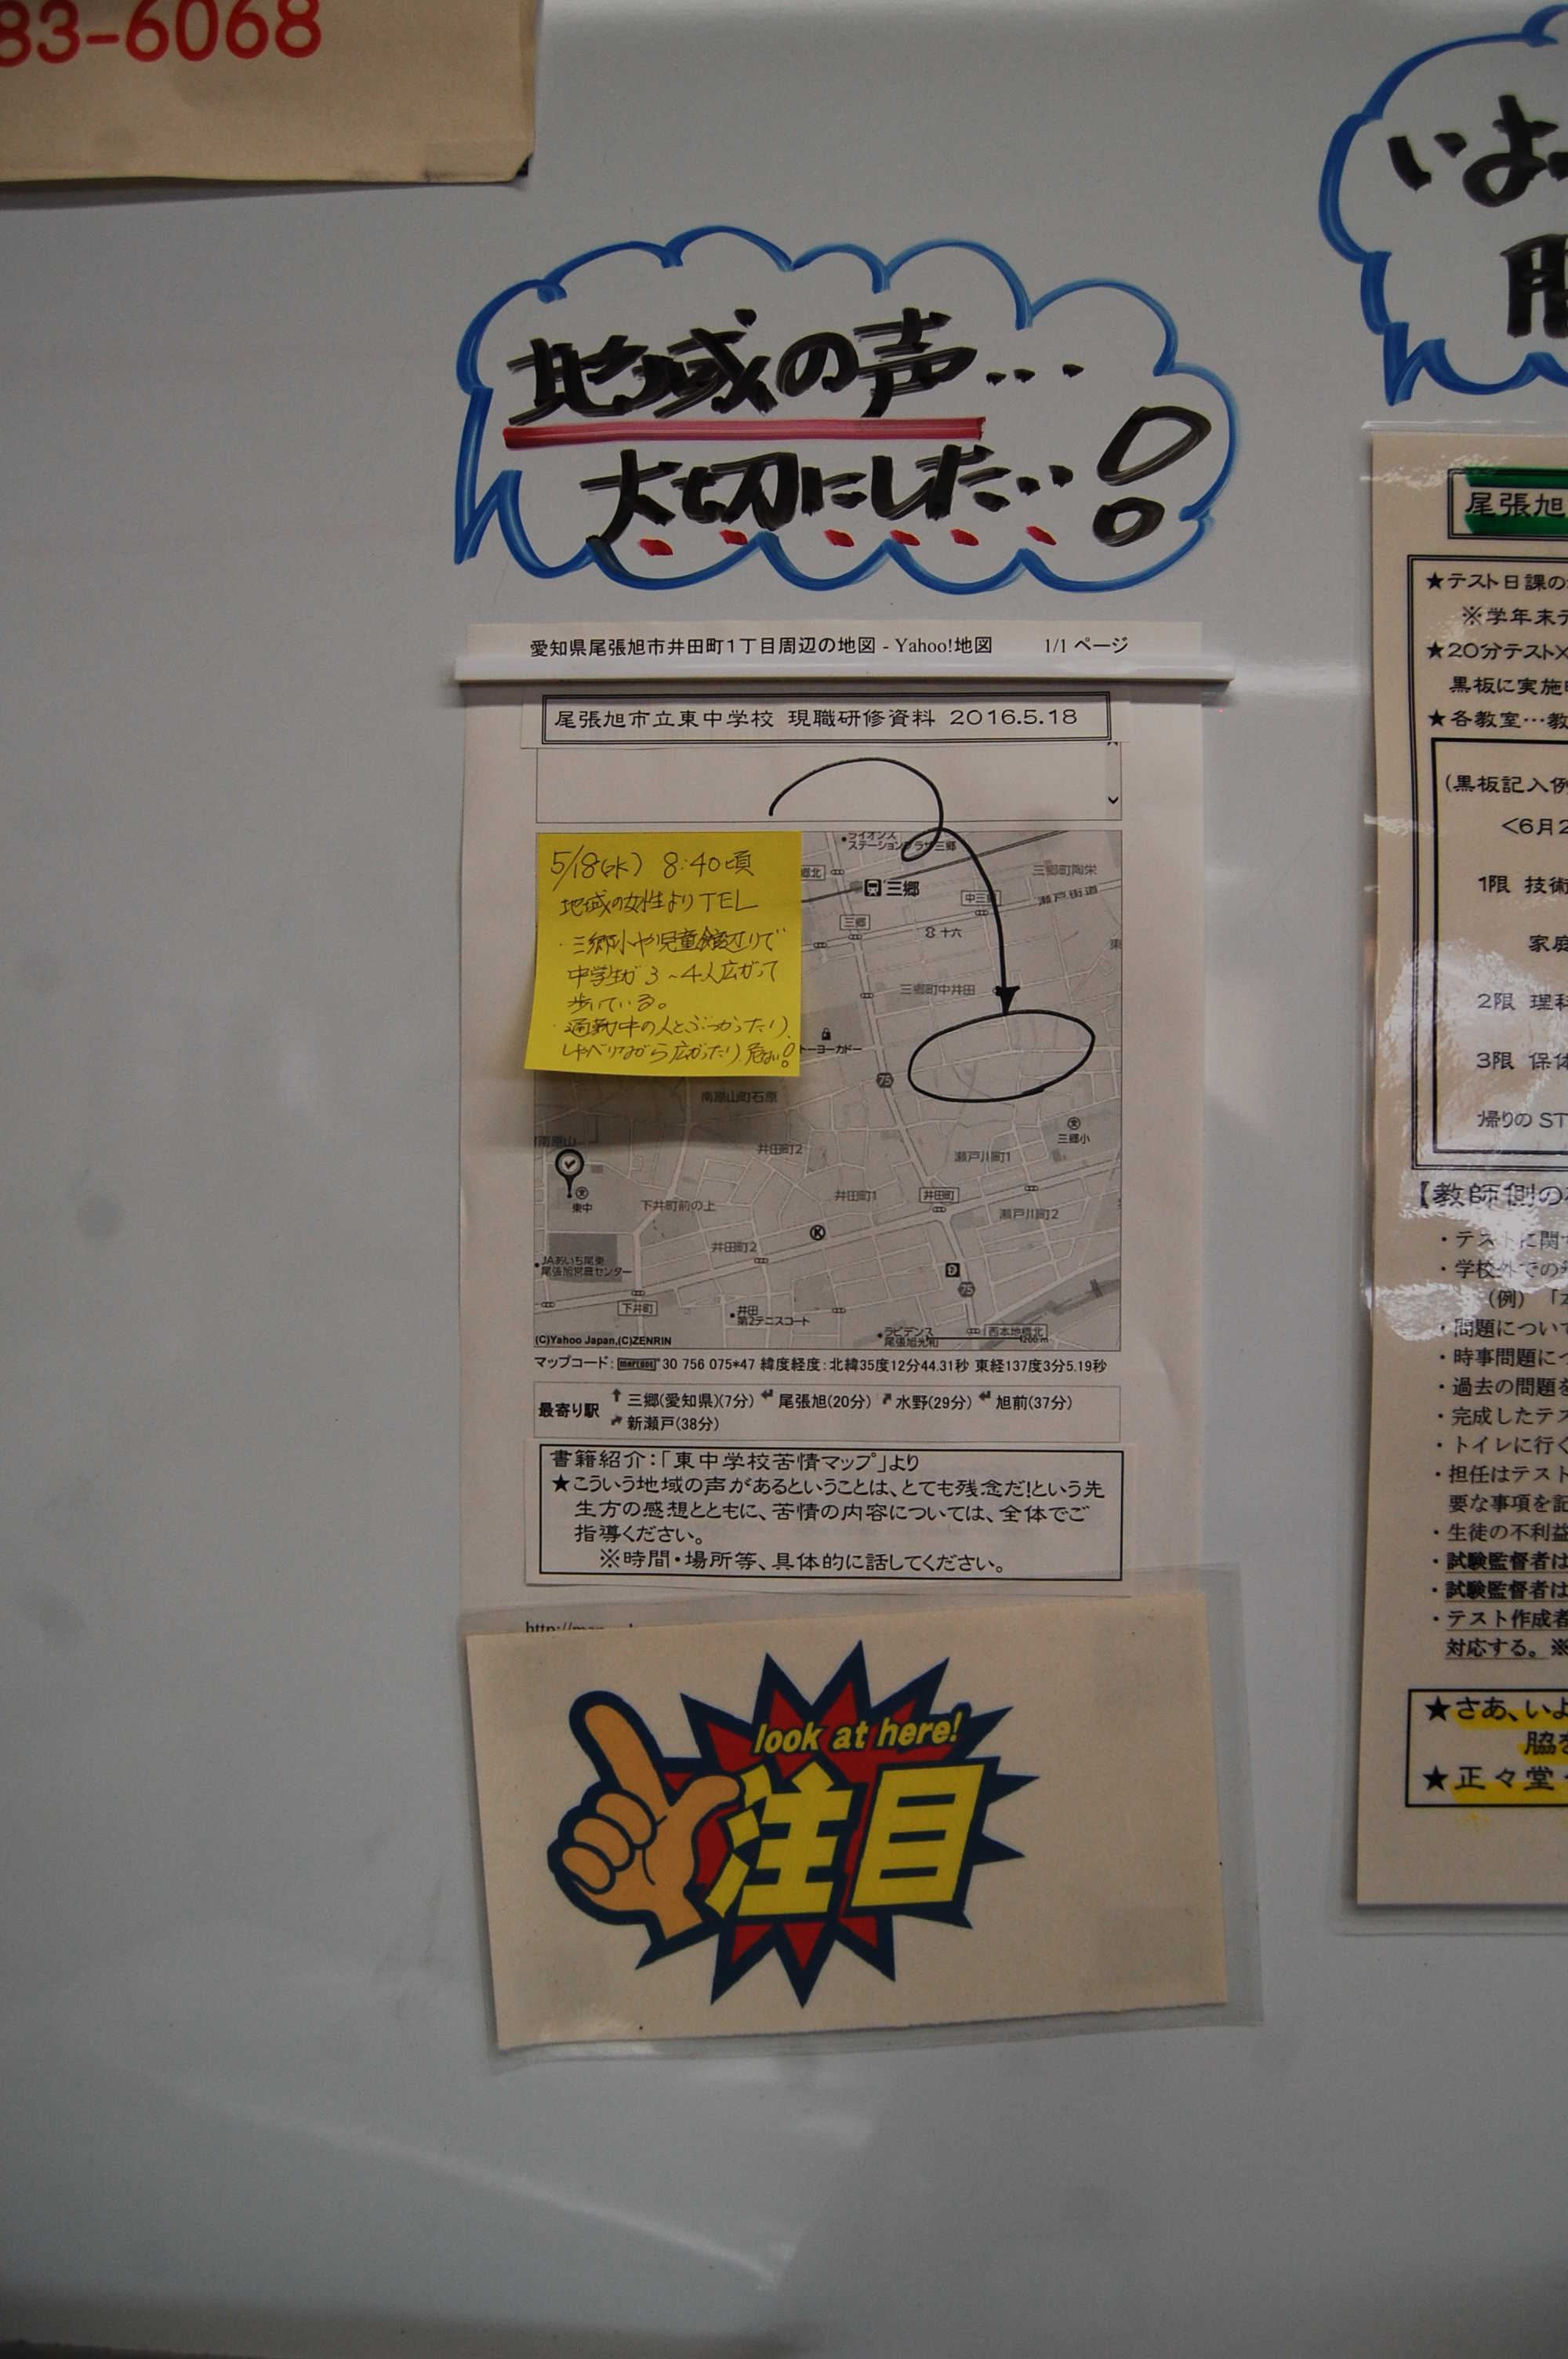 83-6068
地域の声...
大切にしたい!
愛知県尾張旭市井田町1丁目周辺の地図 - Yahoo!地図 1/1 ページ
尾張旭市立東中学校 現職研修資料 2016.5.18
5/18(水) 8:40頃
地域の女性よりTEL
・三郷小や児童館辺りで
中学生が3~4人広がって
歩いている。
・通勤中の人とぶつかったり、
しゃべりながら広がったり、危ない!
ライオンズ
ステーションプラザ三郷
郷北
三郷
三郷町陶栄
瀬戸街道
中三郷
三郷
十六
東
三郷町中井田
トーヨーカドー
75
南原山町石原
三郷小
井田町2
瀬戸川町1
南原山
東中
下井町前の上
井田町1
井田町
瀬戸川町2
井田町2
JAあいち尾東
尾張旭営農センター
下井町
井田
第2テニスコート
75
ラビデンス
尾張旭光和
西本地橋北
200m
(C)Yahoo Japan,(C)ZENRIN
マップコード: mapcode 30 756 075*47 緯度経度:北緯35度12分44.31秒 東経137度3分5.19秒
最寄り駅 三郷(愛知県)(7分) 尾張旭(20分) 水野(29分) 旭前(37分)
新瀬戸(38分)
書籍紹介:「東中学校苦情マップ」より
★こういう地域の声があるということは、とても残念だ!という先
生方の感想とともに、苦情の内容については、全体でご
指導ください。
※時間・場所等、具体的に話してください。
look at here!
注目
いよ
尾張旭
★テスト日課の
※学年末テ
★20分テスト×
黒板に実施
★各教室…教
(黒板記入例
<6月2
1限 技術
家庭
2限 理科
3限 保体
帰りのST
【教師側の
・テストに関
・学校外での
(例)「
・問題について
・時事問題に
・過去の問題を
・完成したテス
・トイレに行く
・担任はテスト
要な事項を記
・生徒の不利益
・試験監督者は
・試験監督者は
・テスト作成者
対応する。※
★さあ、いよ
脇を
★正々堂